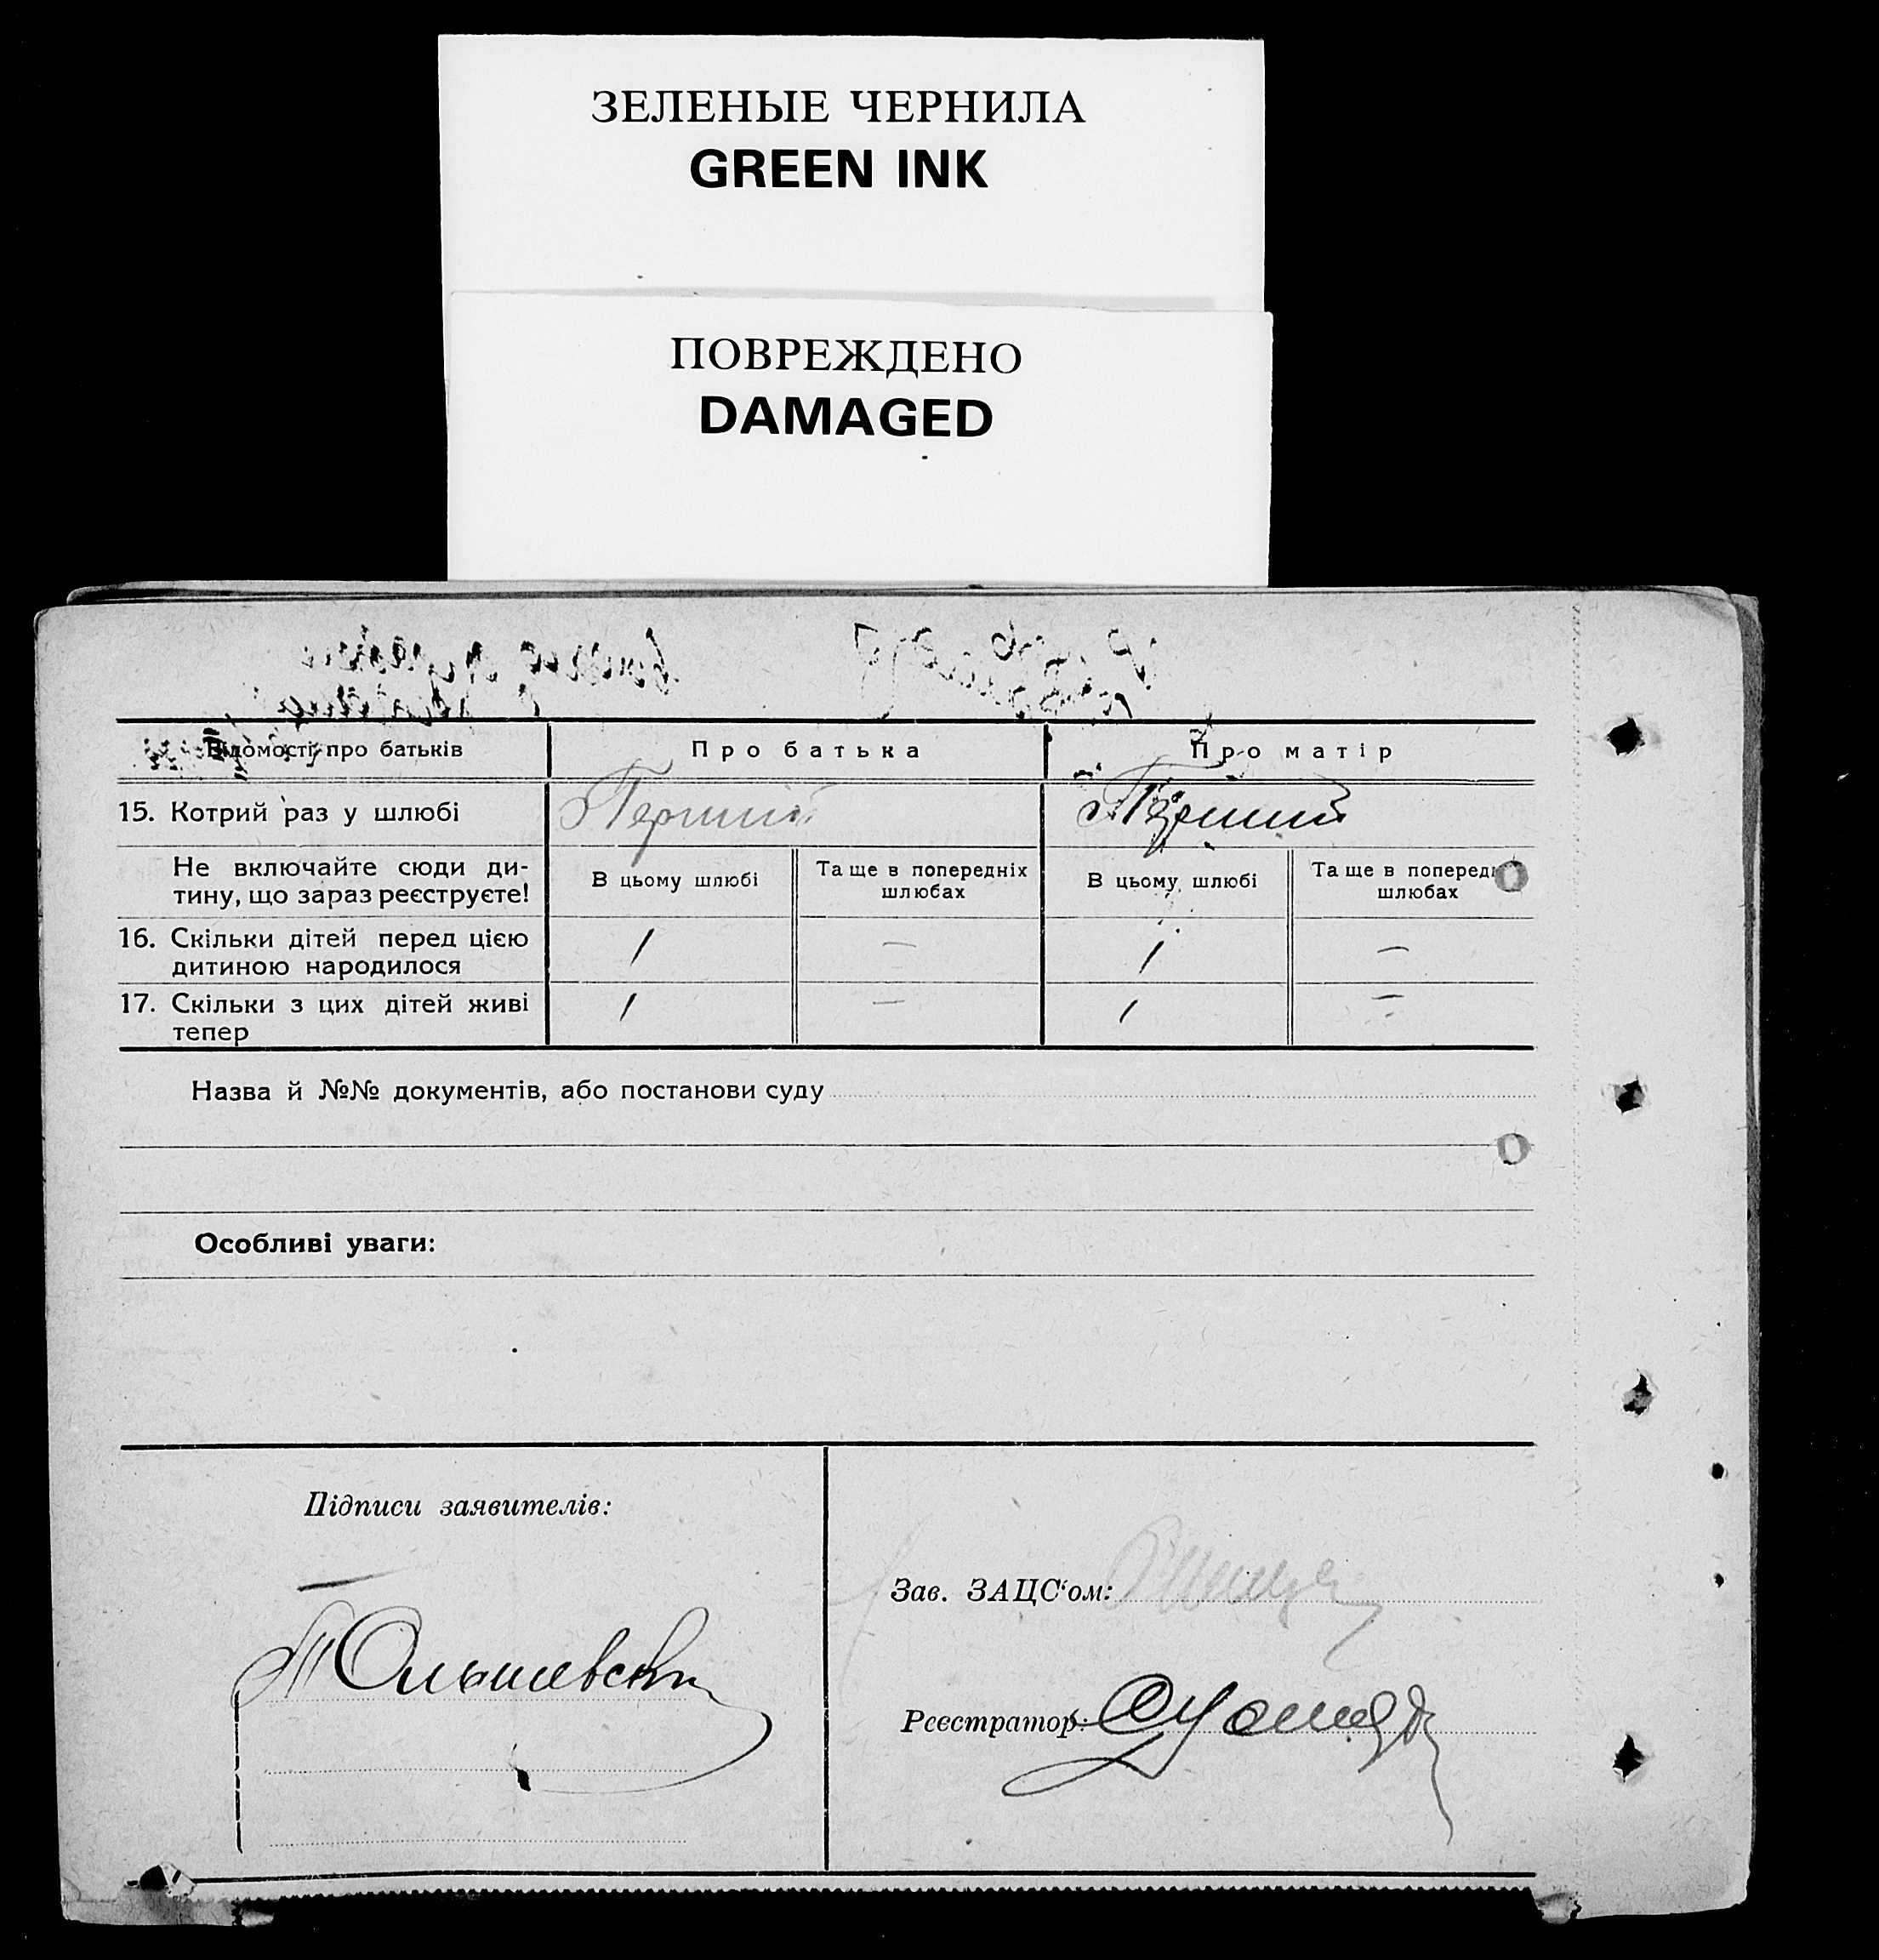 ЗЕЛЕНЫЕ ЧЕРНИЛА
GREEN INK
ПОВРЕЖДЕНО
DAMAGED
Відомості про батьків Про батька Про матір
15. Котрий раз у шлюбі Перший Перший
Не включайте сюди ди-
тину, що зараз реєструєте! В цьому шлюбі Та ще в попередніх шлюбах В цьому шлюбі Та ще в поперед шлюбах
16. Скільки дітей перед цією
дитиною народилося 1 — 1 —
17. Скільки з цих дітей живі
тепер 1 — 1 —
Назва й №№ документів, або постанови суду
Особливі уваги:
Підписи заявителів:
Зав. ЗАЦС‘ом:
Реєстратор: